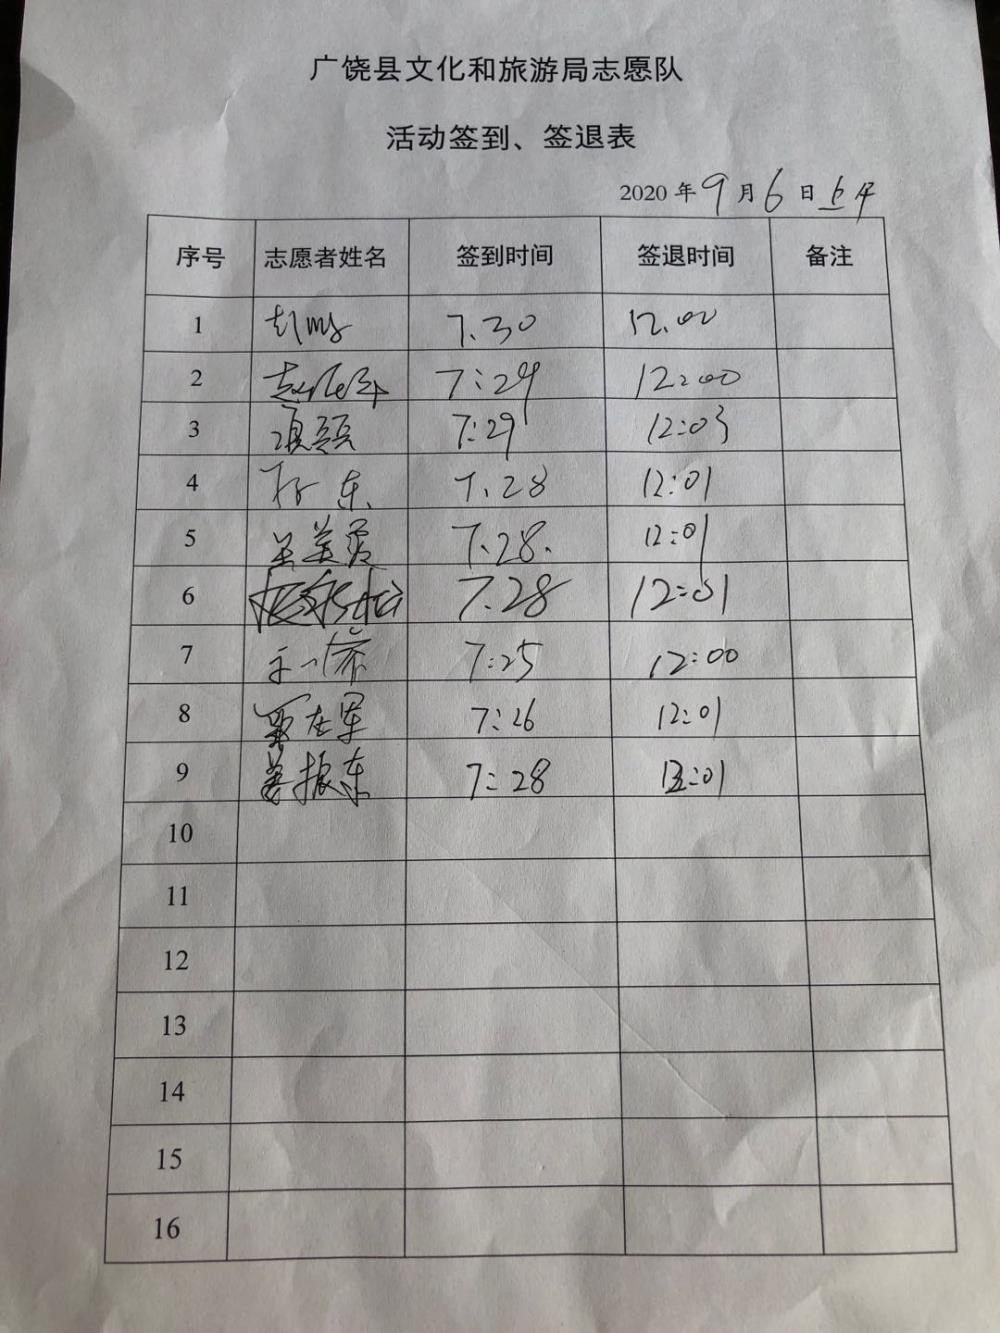 广饶县文化和旅游局志愿队
活动签到、签退表
2020 年 9 月 6 日 上午
序号 志愿者姓名 签到时间 签退时间 备注
1 7.30 12.00
2 7:29 12:00
3 7:29 12:03
4 东 7.28 12:01
5 7.28. 12:01
6 7.28 12:01
7 7:25 12:00
8 在军 7:26 12:01
9 姜振东 7:28 :01
10
11
12
13
14
15
16